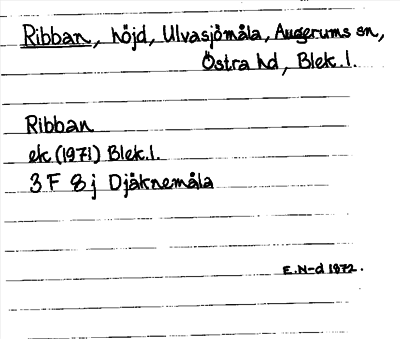 Ribban, höjd, Ulvasjömåla, Augerums sn,
Östra hd, Blek. l.
Ribban
ek (1971) Blek. l.
3 F 8 j Djåknemåla
E. N-d 1972.